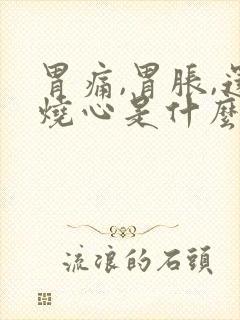 胃痛,胃脹,
燒心是什麼
流浪的石頭